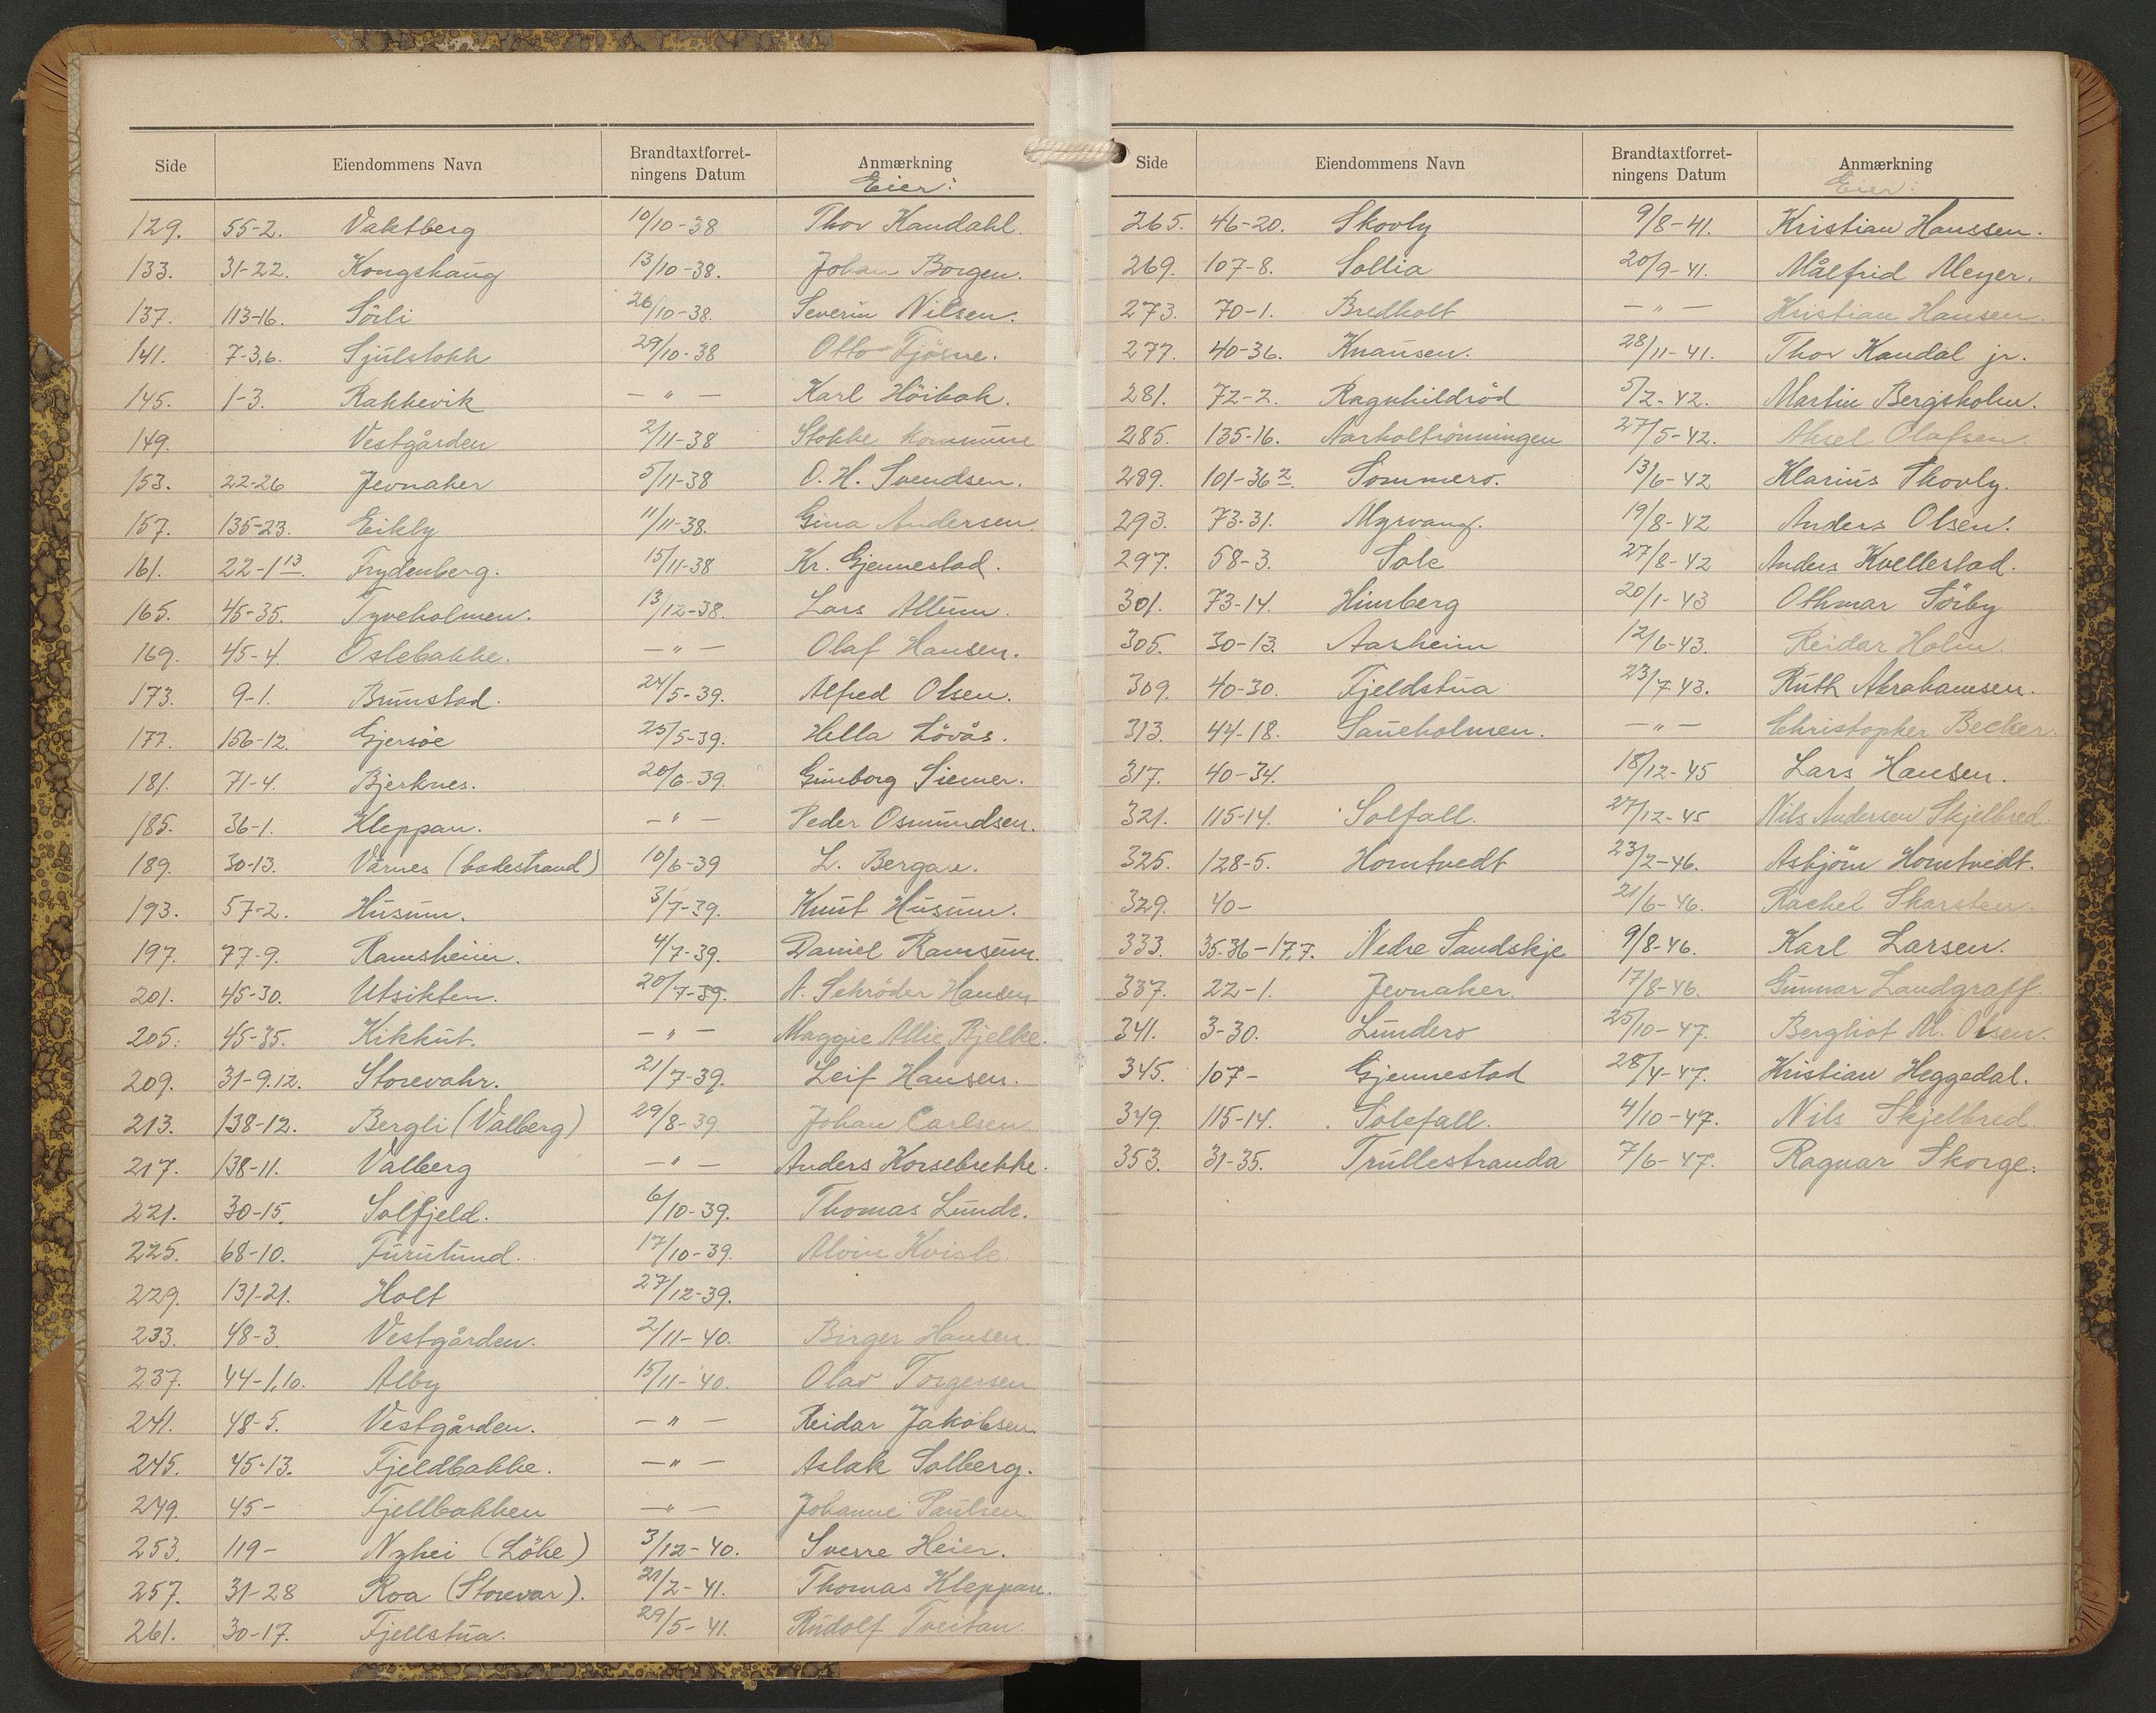 Side Eiendommens Navn Brandtaxtforret-ningens Datum Anmærkning
Eier:
129. 55-2. Vaktberg 10/10-38 Thor Kandahl.
133. 31-22. Kongshaug 13/10-38. Johan Borgen.
137. 113-16. Sörli 26/10-38. Severin Nilsen.
141. 7-3,6. Sjulstokk 29/10-38 Otto Tjösne.
145. 1-3. Rakkevik — " — Karl Höibak.
149. Vestgården 2/11-38 Stokke kommune
153. 22-26 Jevnaker 5/11-38 O. H. Svendsen.
157. 135-23. Eikly 11/11-38. Gina Andersen.
161. 22-1 13. Frydenberg. 15/11-38 Kr. Gjennestad.
165. 45-35. Tyveholmen. 13/12-38. Lars Allum.
169. 45-4. Oslebakke. — " — Olaf Hansen.
173. 9-1. Brunstad. 24/5-39. Alfred Olsen.
177. 156-12. Gjersöe 25/5-39. Hella Lövås.
181. 71-4. Bjerknes. 20/6-39. Gunborg Siemer.
185. 36-1. Kleppan. — " — Peder Osmundsen.
189. 30-13. Vårnes (badestrand) 10/6-39 L. Bergan.
193. 57-2. Husum. 3/7-39. Knut Husum.
197. 77-9. Ramsheim. 4/7-39. Daniel Ramsum.
201. 45-30. Utsikten. 20/7-39. A. Schröder Hansen
205. 45-35. Kikkut. — " — Maggie Allie Bjelke.
209. 31-9.12. Storevahr. 21/7-39. Leif Hansen.
213. 138-12. Bergli (Valberg) 29/8-39. Johan Carlsen
217. 138-11. Valberg — " — Anders Korsebrekke.
221. 30-15. Solfjeld. 6/10-39. Thomas Lunde.
225. 68-10. Furulund. 17/10-39. Alvin Kvisle.
229. 131-21. Holt 27/12-39.
233. 48-3. Vestgården. 2/11-40. Birger Hansen.
237. 44-1,10. Alby 15/11-40. Olav Torgersen.
241. 48-5. Vestgården. — " — Reidar Jakobsen.
245. 45-13. Fjeldbakke. — " — Aslak Solberg.
249. 45- Fjellbakken — " — Johanne Paulsen.
253. 119- Nyhei (Löke) 3/12-40. Sverre Heier.
257. 31-28 Roa (Storevar). 21/2-41. Thomas Kleppan.
261. 30-17. Fjellstua. 29/5-41. Rudolf Tveitan.
Side Eiendommens Navn Brandtaxtforret-ningens Datum Anmærkning
Eier:
265. 46-20. Skovly 9/8-41. Kristian Hanssen.
269. 107-8. Sollia 20/9-41. Målfrid Meyer.
273. 70-1. Bredholt — " — Kristian Hansen.
277. 40-36. Knausen. 28/11-41. Thor Kandal jr.
281. 72-2. Ragnhildröd 5/2-42. Martin Bergsholm.
285. 135-16. Aarholtrönningen 27/5-42. Aksel Olafsen
289. 101-36 2. Sommero. 13/6-42 Klarius Skovly.
293. 73-31. Myrvang. 19/8-42 Anders Olsen.
297. 58-3. Sole 27/8-42 Anders Kvellestad.
301. 73-14. Himberg 20/1-43 Othmar Sörby
305. 30-13. Aasheim 12/6-43. Reidar Holm.
309. 40-30. Fjeldstua 23/7-43. Ruth Abrahamsen.
313. 44-18. Saueholmen. — " — Christopher Becker.
317. 40-34. 18/12-45 Lars Hansen.
321. 115-14. Solfall. 27/12-45 Nils Andersen Skjelbred.
325. 128-5. Homtvedt 23/2-46. Asbjörn Homtvedt.
329. 40- 21/6-46. Rachel Skarsten.
333. 35.36-17,7. Nedre Sandskje 9/8-46. Karl Larsen.
337. 22-1. Jevnaker. 17/8-46. Gunnar Landgraff.
341. 3-30. Lundero 25/10-47. Bergliot M. Olsen.
345. 107- Gjennestad 28/4-47. Kristian Heggedal.
349. 115-14. Solefall. 4/10-47. Nils Skjelbred.
353. 31-35. Trullestranda 7/6-47. Ragnar Skorge.